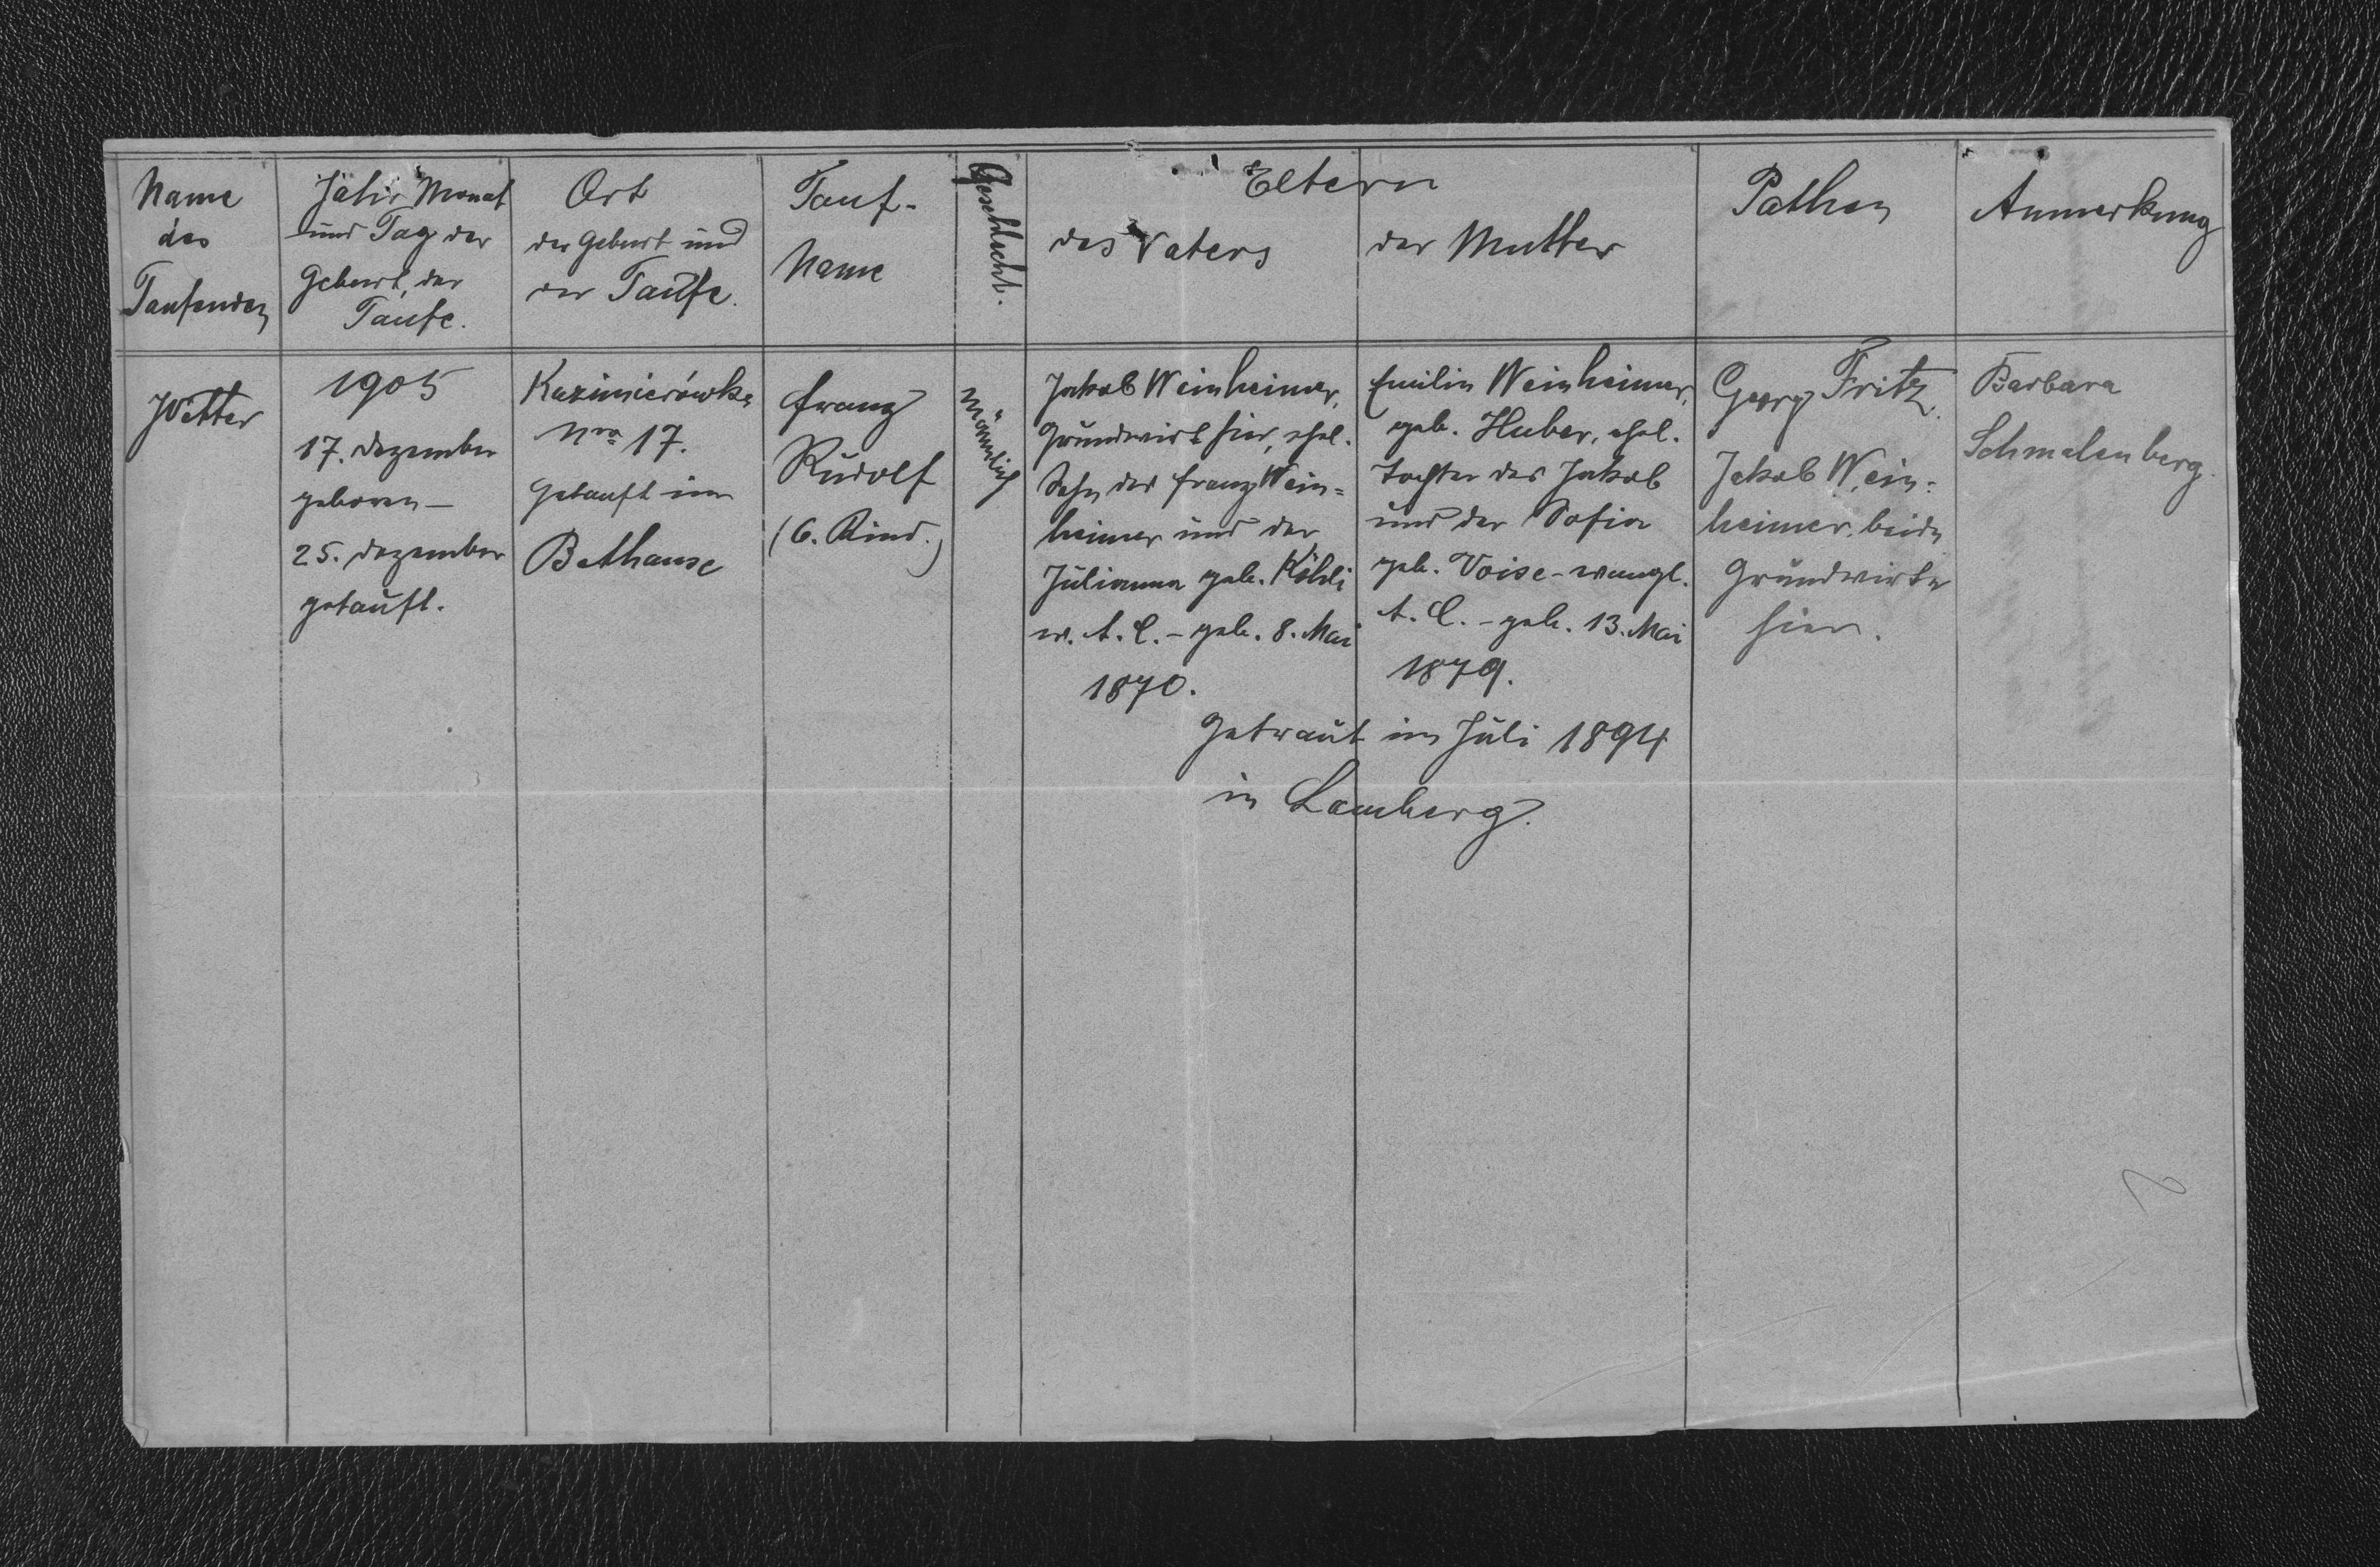 Name
des
Taufenden
Jahr Monat
und Tag der
Geburt, der
Taufe.
Ort
der Geburt und
der Taufe.
Tauf-
Name
Geschlecht.
Eltern
des Vaters
der Mutter
Pathen
Anmerkung
1905
17. Dezember
geboren –
25. Dezember
getauft.
Kazimierówka
Nro 17.
Getauft im
Bethause
Franz
Rudolf
(6. Kind.)
männlich
Jakob Weinheimer,
Grundwirt hier, ehel.
Sohn des Franz Wein=
heimer und der
Julianna geb. Köhli
ev. A. C. – geb. 8. Mai
1870.
Emilie Weinheimer,
geb. Huber, ehel.
Tochter des Jakob
und der Sofia
geb. Voise – evangl.
A. C. – geb. 13. Mai
1879.
Getraut im Juli 1894
in Lemberg.
Georg Fritz,
Jakob Wein=
heimer, beide
Grundwirte
hier.
Barbara
Schmalenberg.